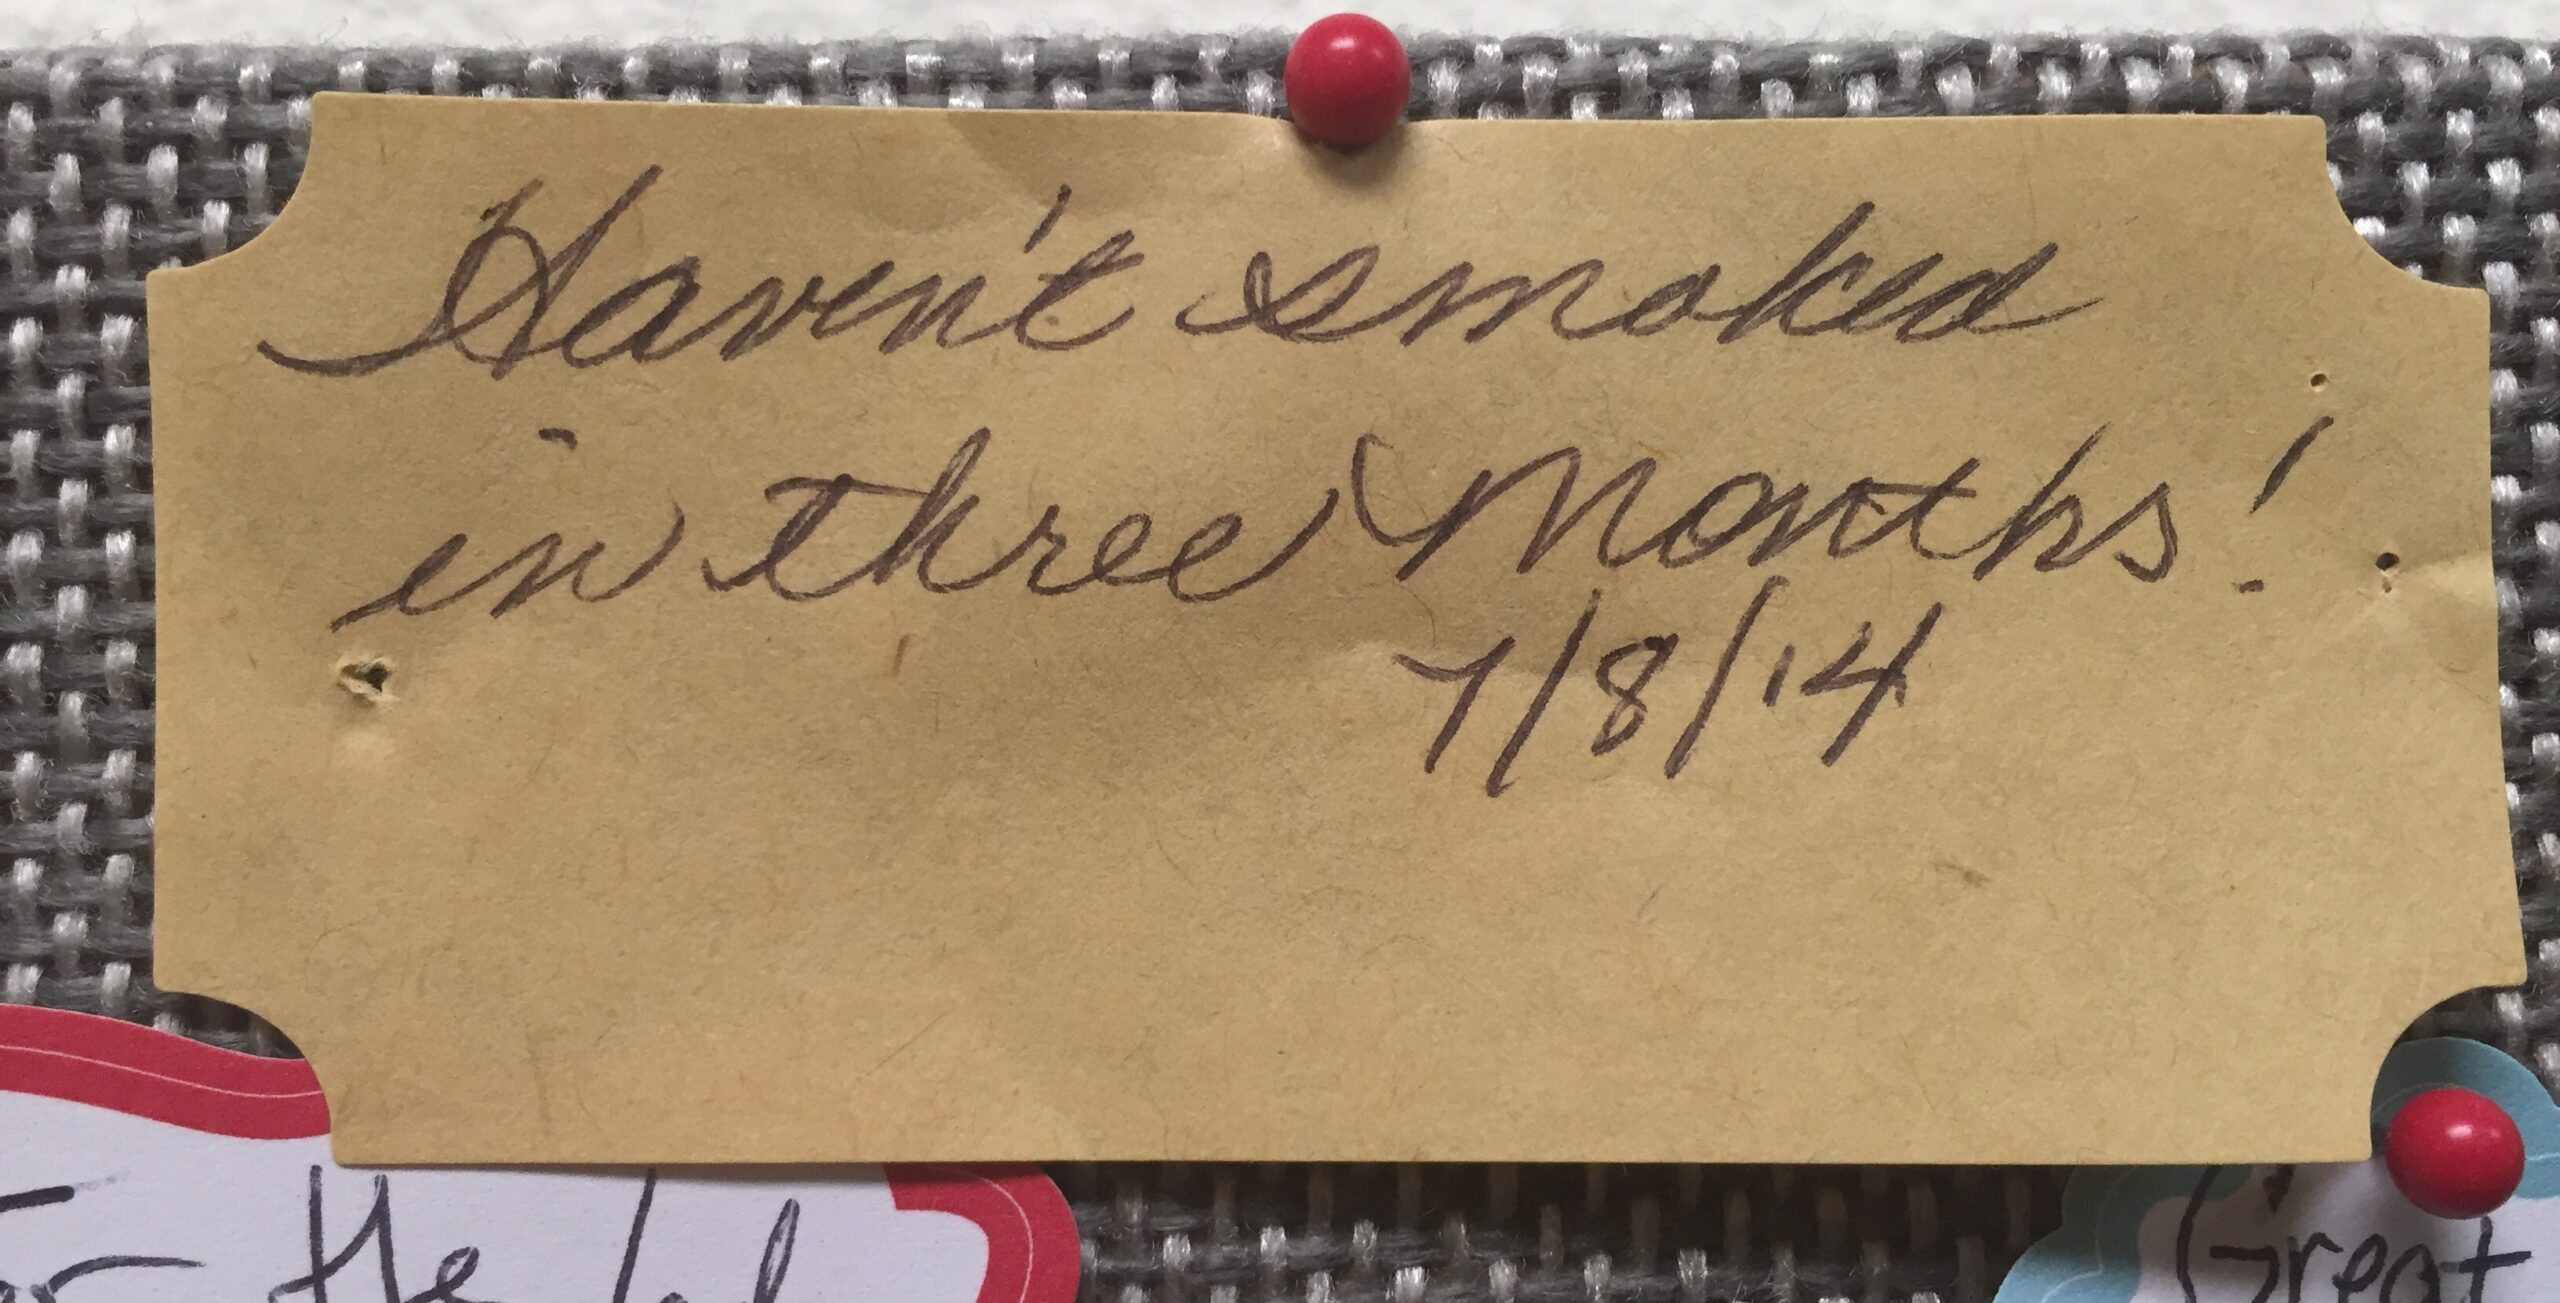 Haven't smoked
in three Months!
7/8/14
the
Great